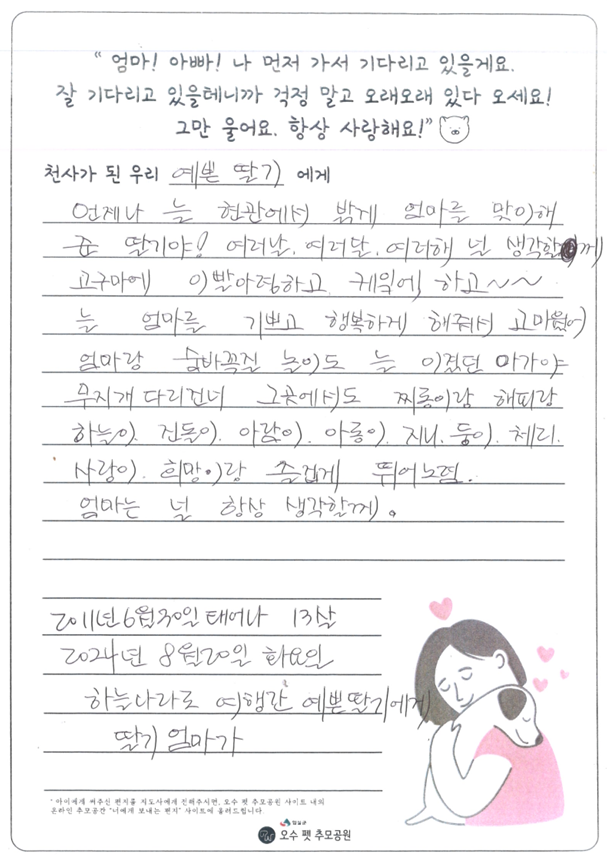 " 엄마! 아빠! 나 먼저 가서 기다리고 있을게요.
잘 기다리고 있을테니까 걱정 말고 오래오래 있다 오세요!
그만 울어요. 항상 사랑해요!"
천사가 된 우리 예쁜 딸기 에게
언제나 늘 현관에서 밝게 엄마를 맞이해
준 딸기야! 여러날, 여러달, 여러해 널 생각할께
고구마에 이발아령하고, 케익에, 하고~~
늘 엄마를 기쁘고 행복하게 해줘서 고마웠어
엄마랑 숨바꼭질 놀이도 늘 이겼던 아가야
무지개 다리건너 그곳에서도 찌롱이랑 해피랑
하늘이, 진돌이, 아람이, 아롱이, 지니, 둥이, 체리,
사랑이, 희망이랑 즐겁게 뛰어노렴.
엄마는 널 항상 생각할께.
2011년 6월 30일 태어나 13살
2024년 8월 20일 화요일
하늘나라로 여행간 예쁜딸기에게
딸기 엄마가
* 아이에게 써주신 편지를 지도사에게 전해주시면, 오수 펫 추모공원 사이트 내의
온라인 추모공간 "너에게 보내는 편지" 사이트에 올려드립니다.
임실군
오수 펫 추모공원